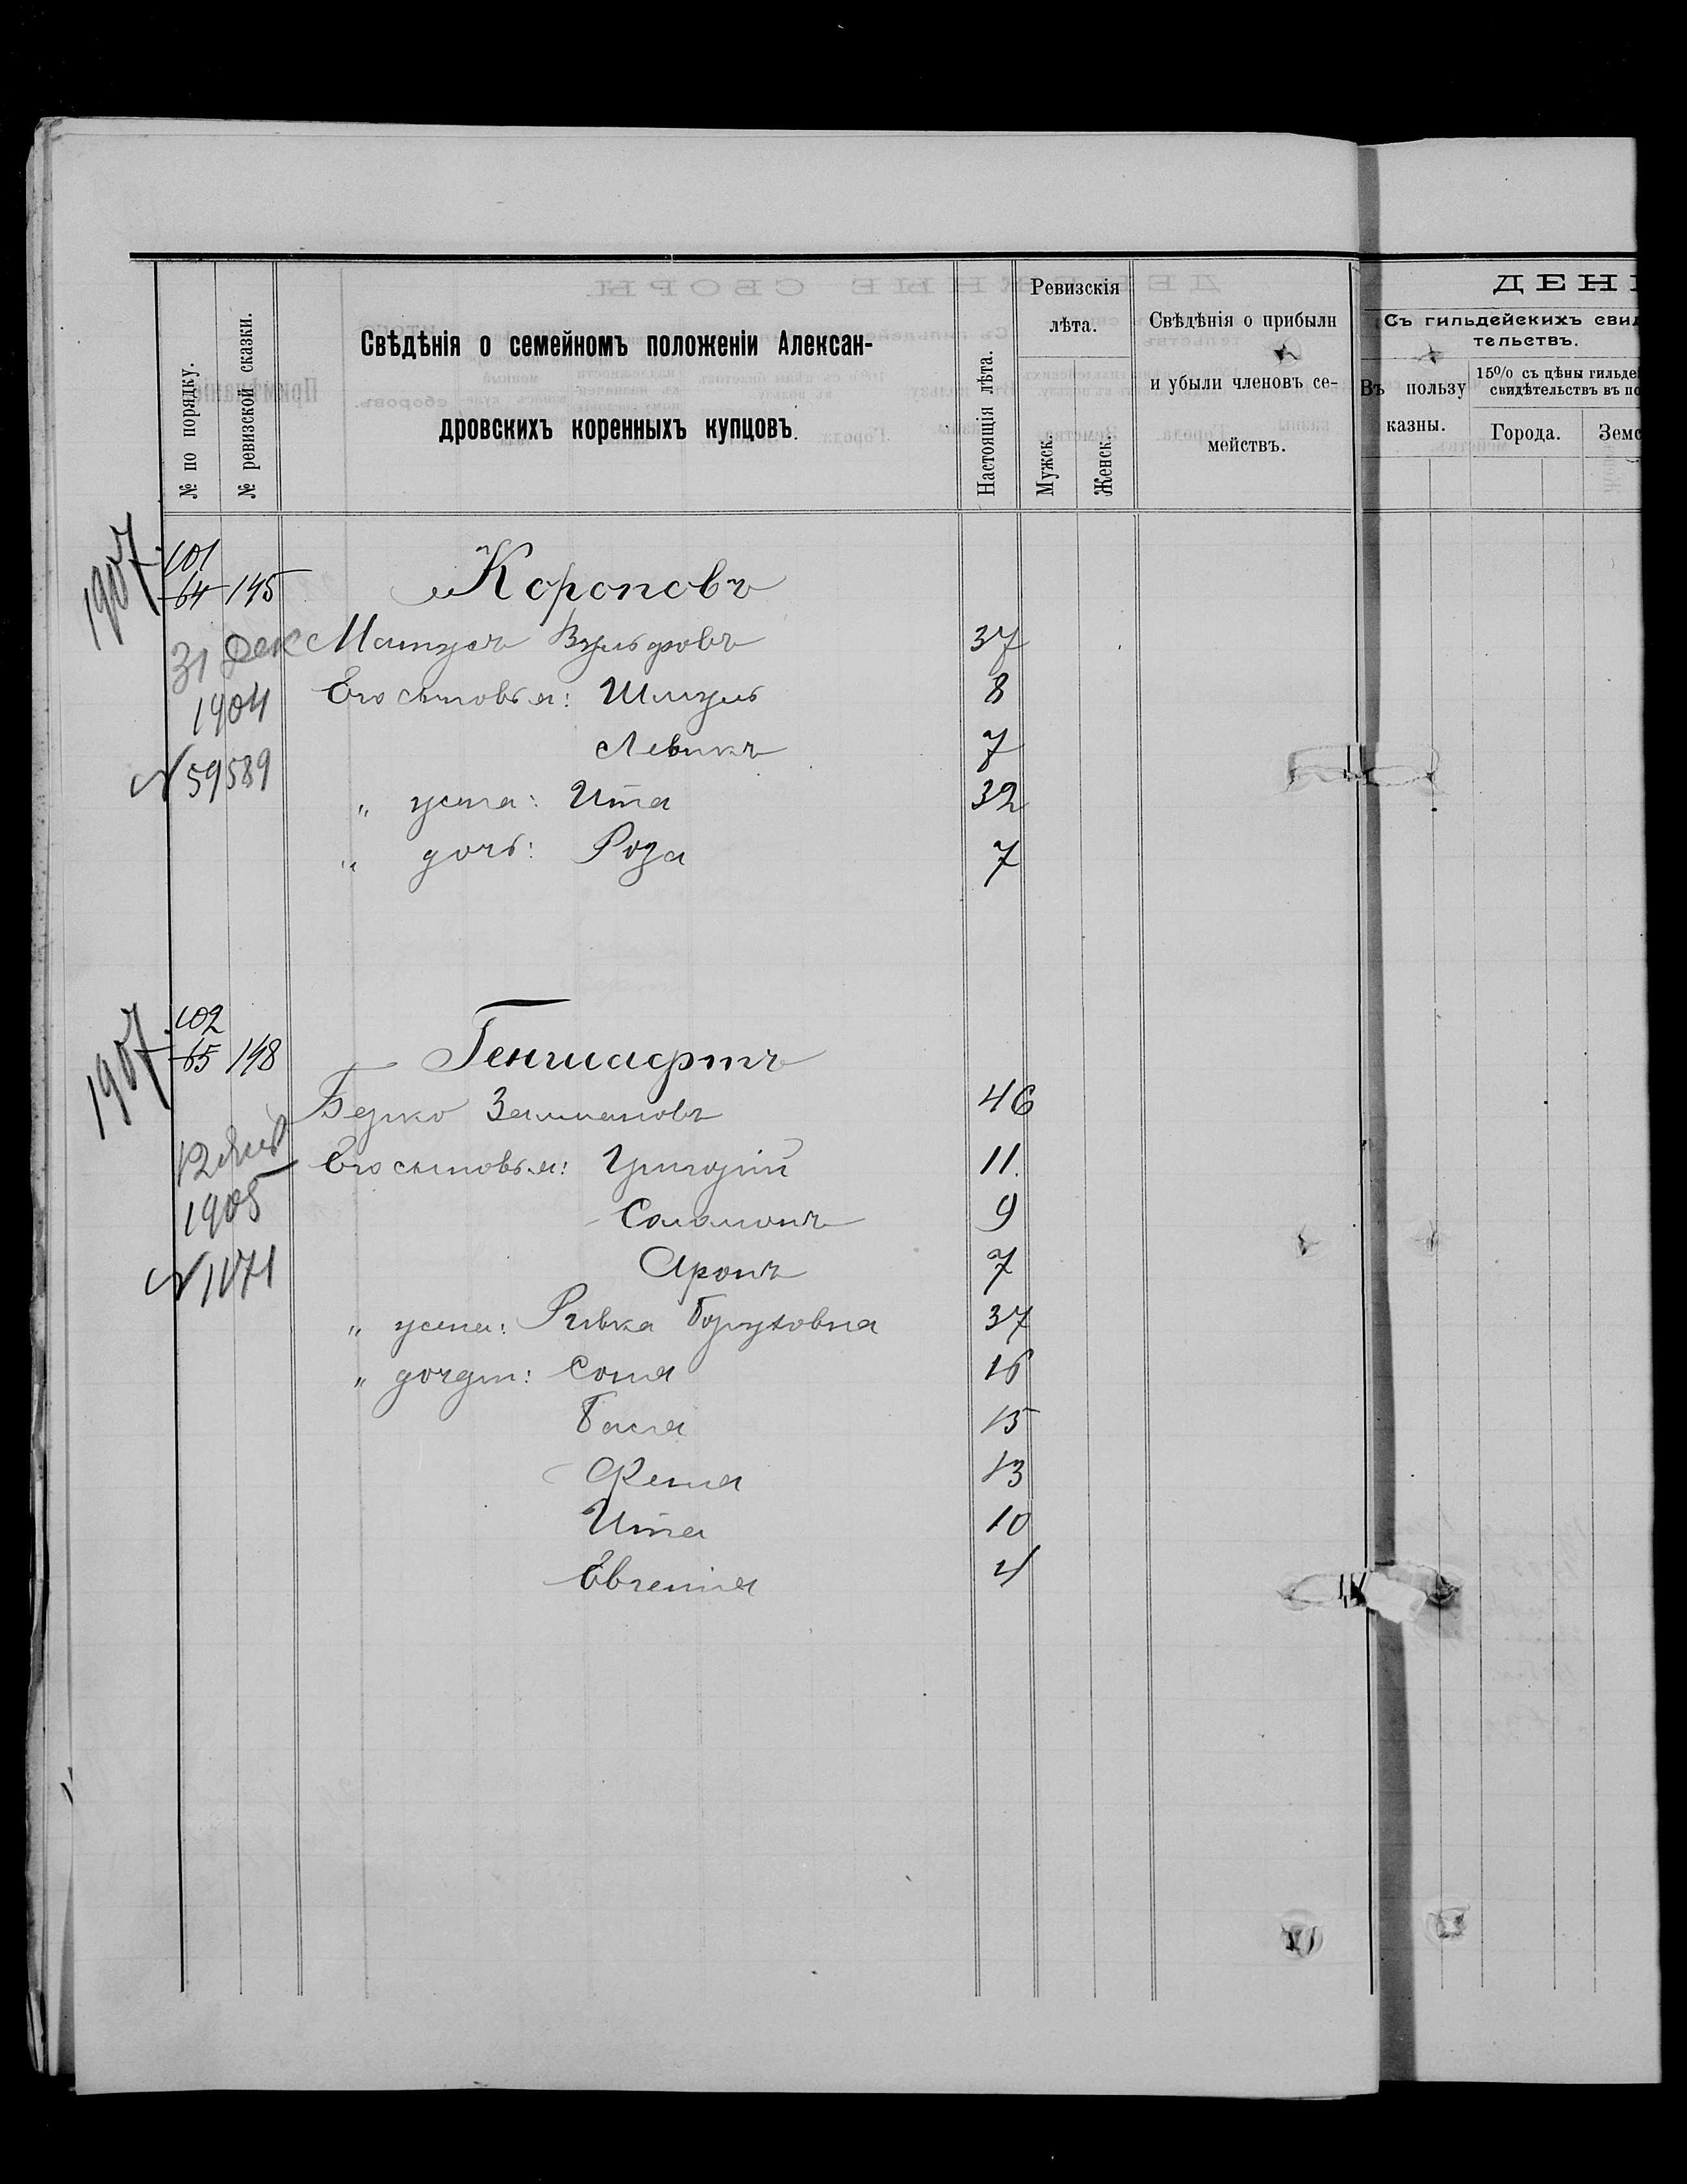 № по порядку.
№ ревизской сказки.
Свѣдѣнія о семейномъ положеніи Алексан-
дровскихъ коренныхъ купцовъ.
Настоящія лѣта.
Ревизскія
лѣта.
Мужск.
Женск.
Свѣдѣнія о прибыли
и убыли членовъ се-
мействъ.
ДЕН
Съ гильдейскихъ свид
тельствъ.
Въ пользу
казны.
15% съ цѣны гильде
свидѣтельствъ въ по
Города.
Земс
1907.
101
64 145 Короповъ
31 Дек Матусъ Вульфовъ 37
1904 Его сыновья: Шмуль 8
Левикъ 7
N 59589
" жена: Ита 32
" дочь: Роза 7
1907.
102
65 148 Геншафтъ
Берко Залмановъ 46
12 Янв Его сыновья: Григорій 11.
1905 Соломонъ 9
N 1171 Аронъ 7
" жена: Ривка Боруховна 37
" дочери: Соня 16
Бася 15
Феня 13
Ита 10
Евгенія 4